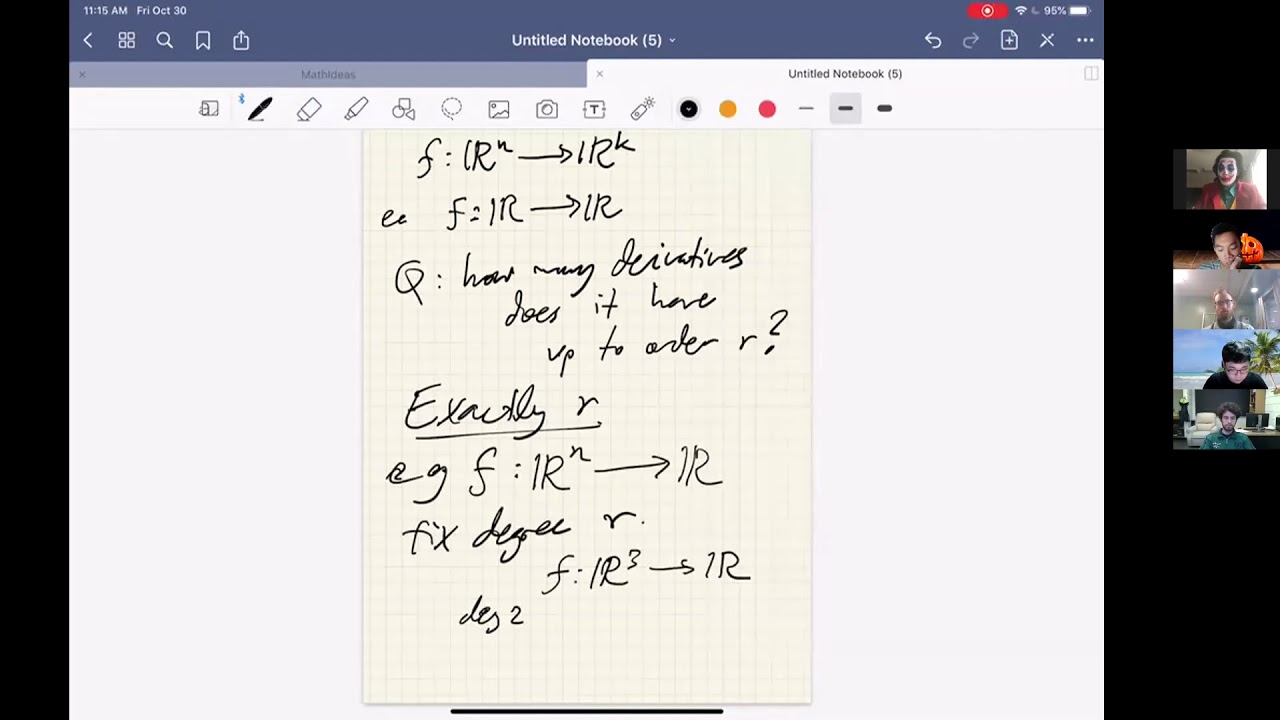 11:15 AM Fri Oct 30
95%
Untitled Notebook (5)
MathIdeas
Untitled Notebook (5)
f : ℝⁿ → ℝᵏ
f : ℝ → ℝ
Q : how many derivatives
does it have
up to order r?
Exactly r
eg f : ℝⁿ → ℝ
fix degree r.
f : ℝ³ → ℝ
deg 2